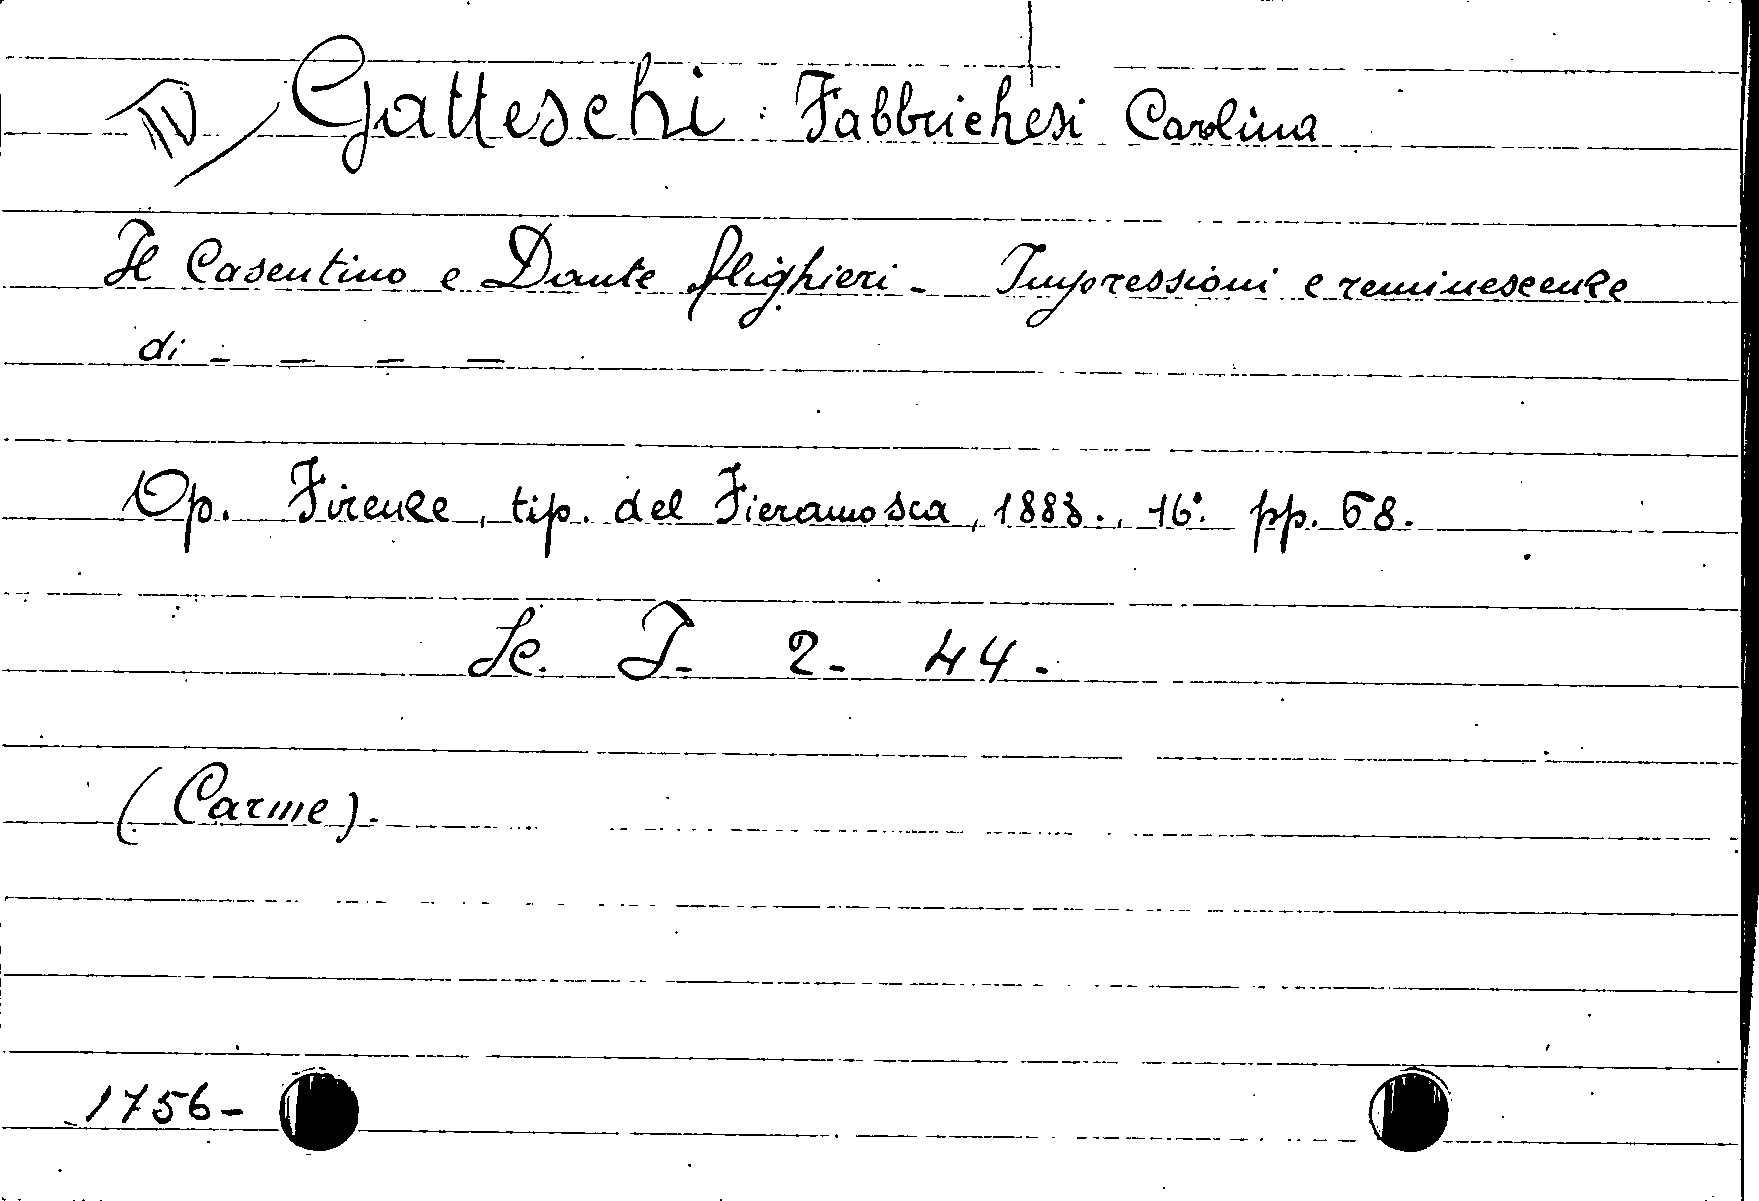 IV Gatteschi Fabbrichesi Carolina
Il Casentino e Dante Alighieri - Impressioni e reminescenze
di - - - -
Op. Firenze, tip. del Fieramosca, 1883., 16° pp. 68.
Sc. I- 2- 44.
(Carme).
1756-